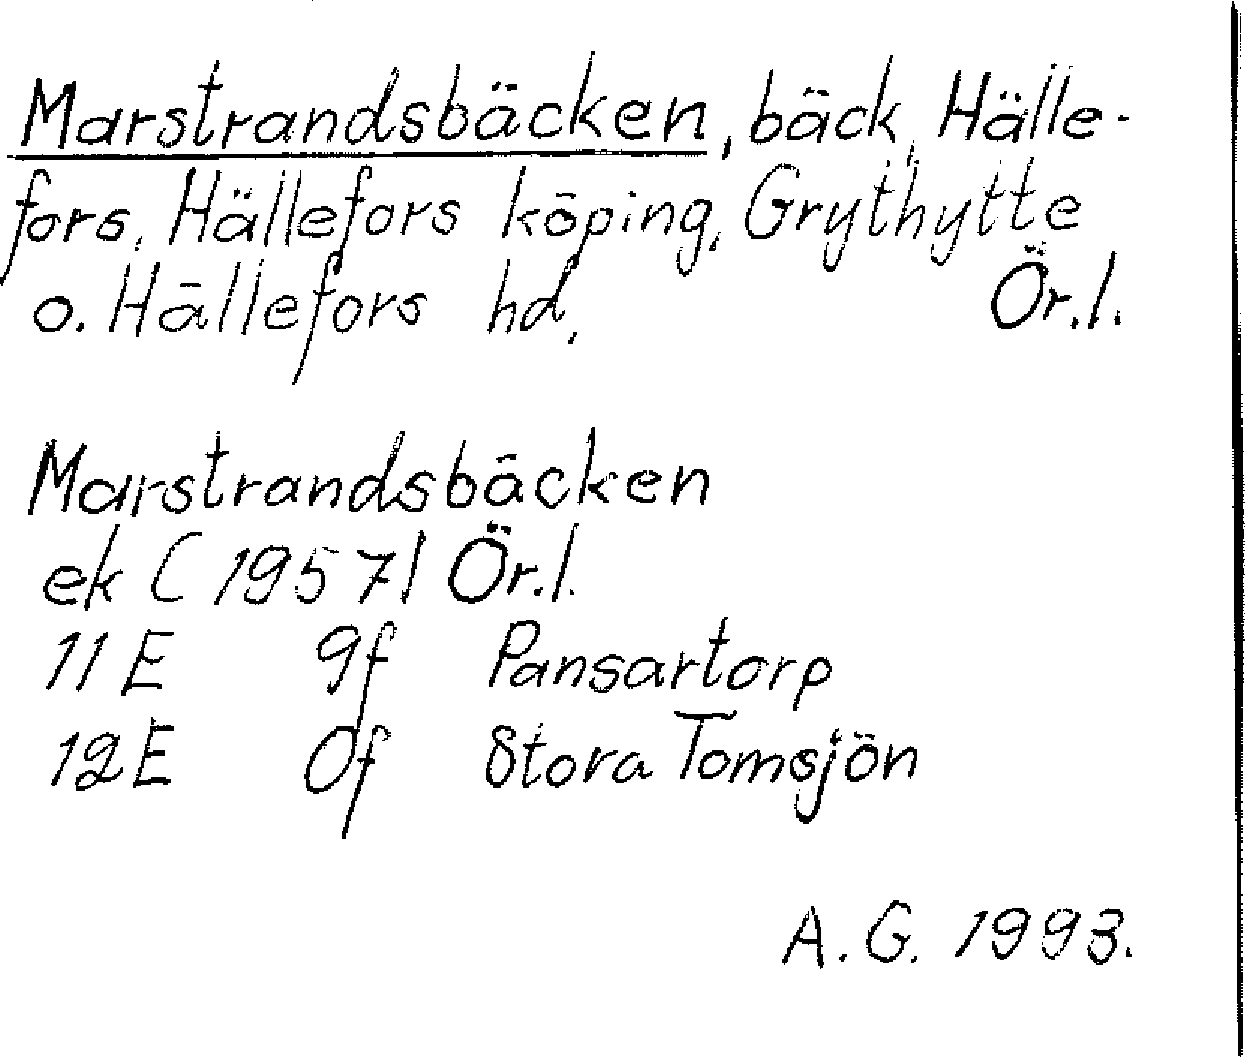 Marstrandsbäcken, bäck, Hälle-
fors, Hällefors köping, Grythytte
o. Hällefors hd, Ör.l.
Marstrandsbäcken
ek (1957) Ör.l.
11E 9f Pansartorp
12E 0f Stora Tomsjön
A.G. 1993.